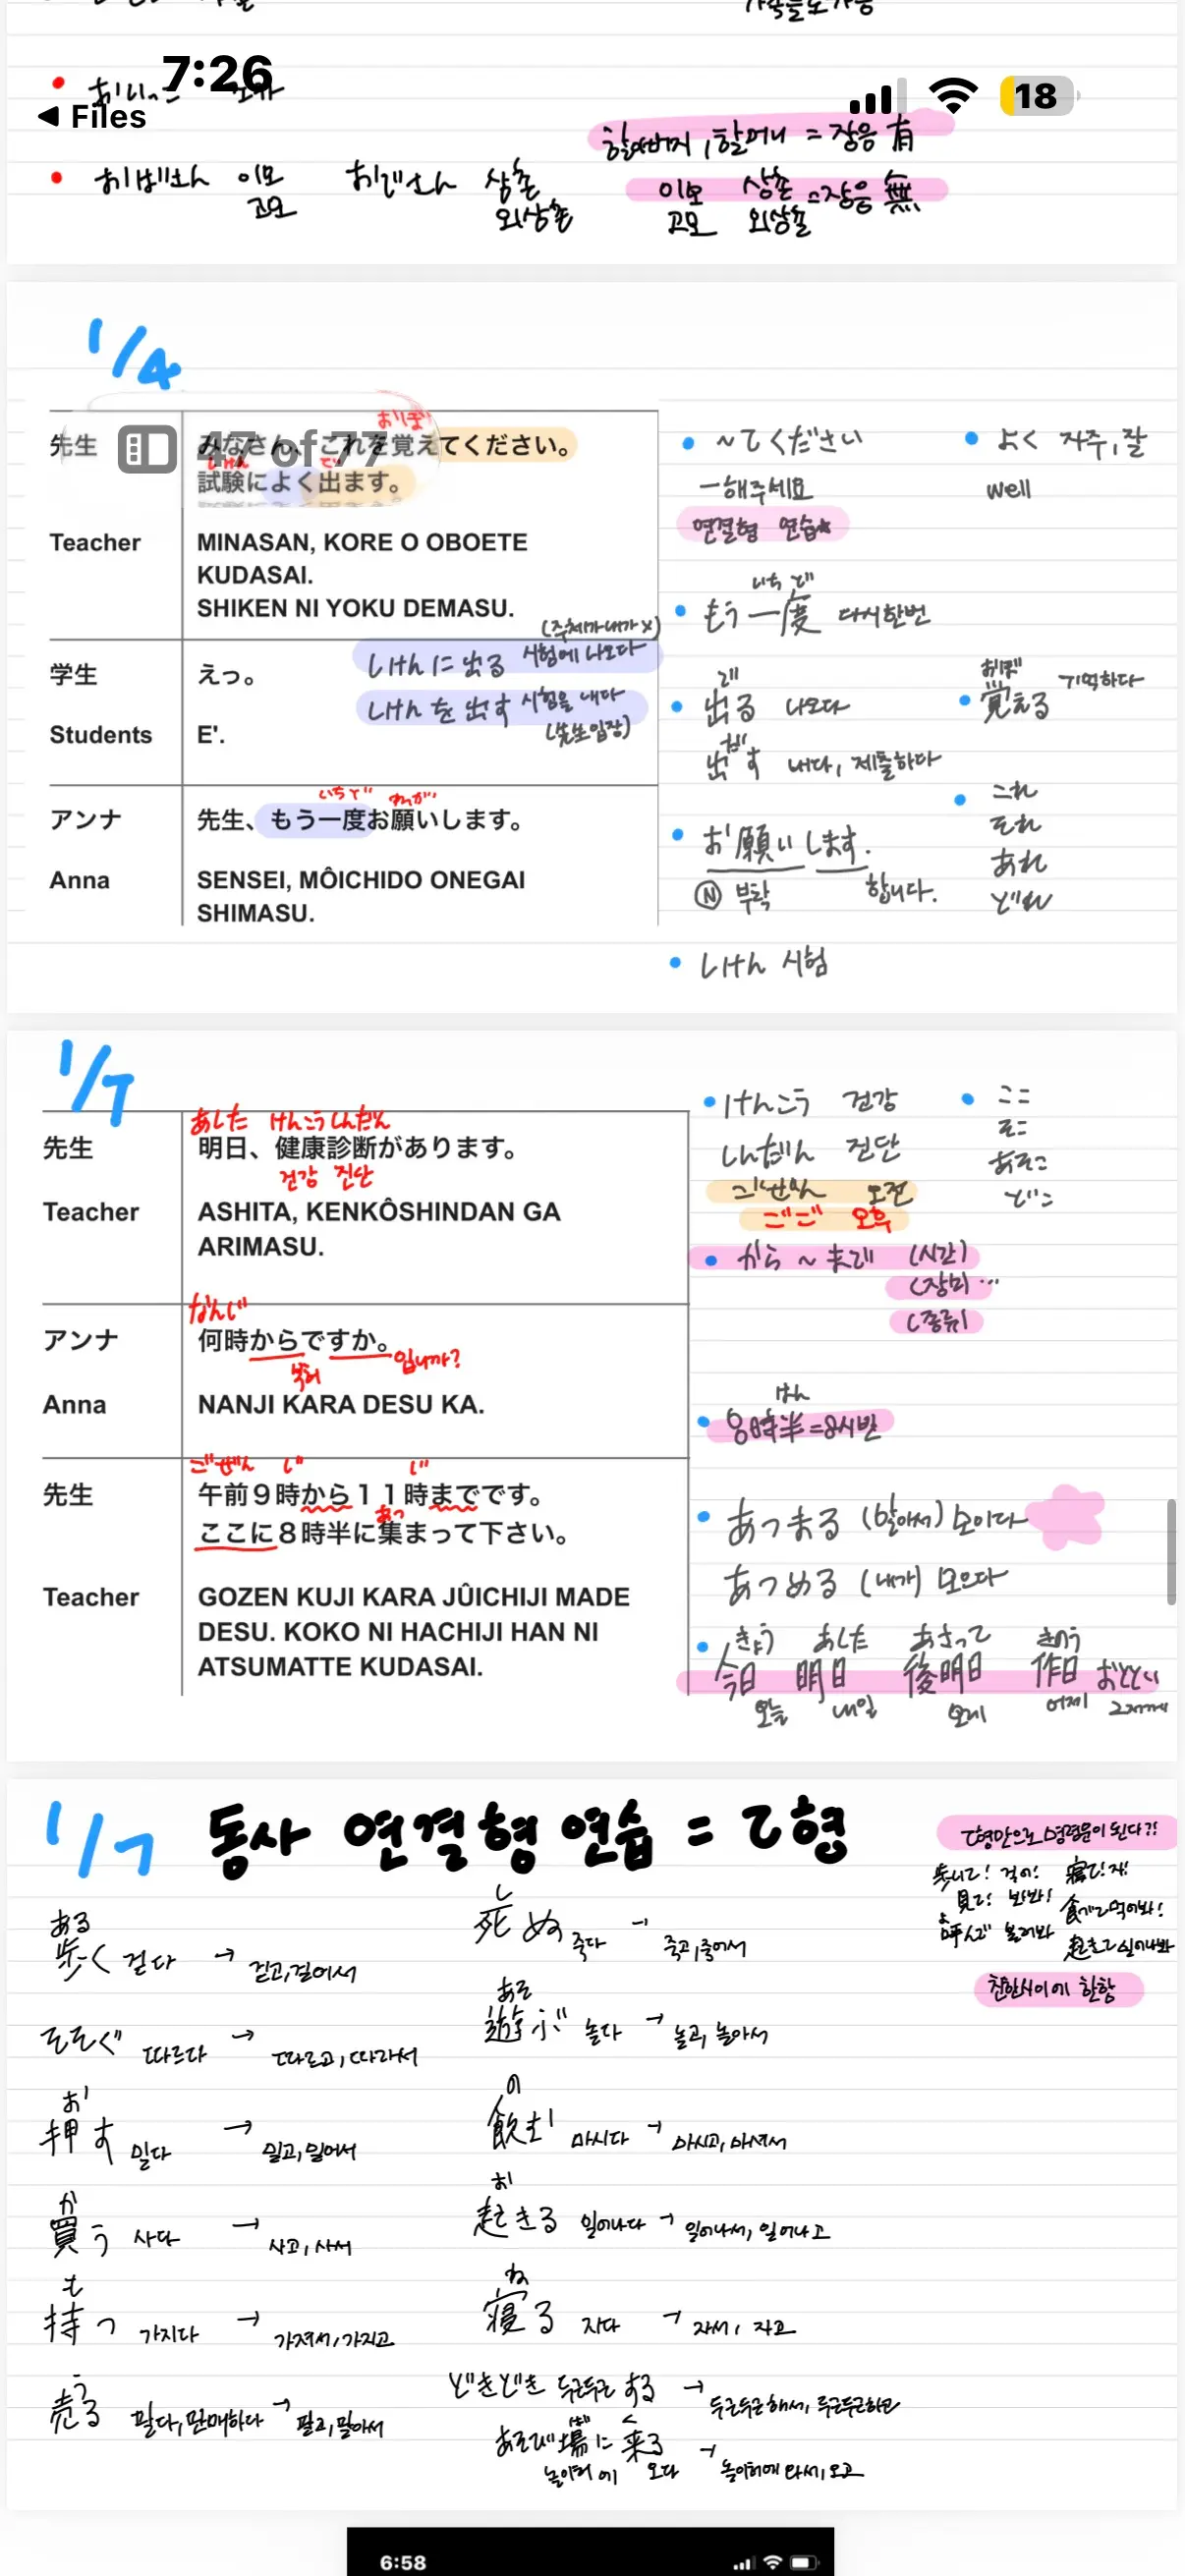 7:26
18
◀ Files
할아버지, 할머니 = 장음 有
おばさん 이모 고모 おじさん 삼촌 외삼촌
이모 고모 삼촌 외삼촌 = 장음 無
1/4
47 of 77
おぼ
先生 みなさん、これを覚えてください。
しけん で
試験によく出ます。
Teacher MINASAN, KORE O OBOETE
KUDASAI.
SHIKEN NI YOKU DEMASU.
(주체가 내가 X)
学生 えっ。
しけんに出る 시험에 나오다
Students E'.
しけんを出す 시험을 내다
(先生 입장)
いちど ねがい
アンナ 先生、もう一度お願いします。
Anna SENSEI, MÔICHIDO ONEGAI
SHIMASU.
~てください
-해주세요
연결형 연습
よく 자주, 잘
well
いち ど
もう一度 다시한번
で
出る 나오다
だ
出す 내다, 제출하다
おぼ
覚える 기억하다
お願いします.
Ⓝ 부탁 합니다.
これ
それ
あれ
どれ
しけん 시험
1/7
あした けんこうしんだん
先生 明日、健康診断があります。
건강 진단
Teacher ASHITA, KENKÔSHINDAN GA
ARIMASU.
なんじ
アンナ 何時からですか。
부터 입니까?
Anna NANJI KARA DESU KA.
ごぜん じ じ
先生 午前９時から１１時までです。
あつ
ここに８時半に集まって下さい。
Teacher GOZEN KUJI KARA JÛICHIJI MADE
DESU. KOKO NI HACHIJI HAN NI
ATSUMATTE KUDASAI.
けんこう 건강
しんだん 진단
ごぜん 오전
ごご 오후
ここ
そこ
あそこ
どこ
から ~ まで (시간)
(장소) …
(종류)
はん
8時半=8시반
あつまる (알아서) 모이다
あつめる (내가) 모으다
きょう あした あさって きのう
今日 明日 後明日 作日 おととい
오늘 내일 모레 어제 그저께
1/7 동사 연결형 연습 = て형
て형만으로 명령문이 된다?!
歩いて! 걸어! 寝て! 자!
見て! 봐봐! 食べて 먹어봐!
よ
呼んで 불러봐
起きて 일어나봐
친한사이에 한함
ある
歩く 걷다 → 걷고, 걸어서
そそぐ 따르다 → 따르고, 따라서
お
押す 밀다 → 밀고, 밀어서
か
買う 사다 → 사고, 사서
も
持つ 가지다 → 가져서, 가지고
う
売る 팔다, 판매하다 → 팔고, 팔아서
し
死ぬ 죽다 → 죽고, 죽어서
あそ
遊ぶ 놀다 → 놀고, 놀아서
の
飲む 마시다 → 마시고, 마셔서
お
起きる 일어나다 → 일어나서, 일어나고
ね
寝る 자다 → 자서, 자고
どきどき 두근두근 する → 두근두근해서, 두근두근하고
ば く
あそび場に来る → 놀이터에 와서, 오고
놀이터에 오다
6:58